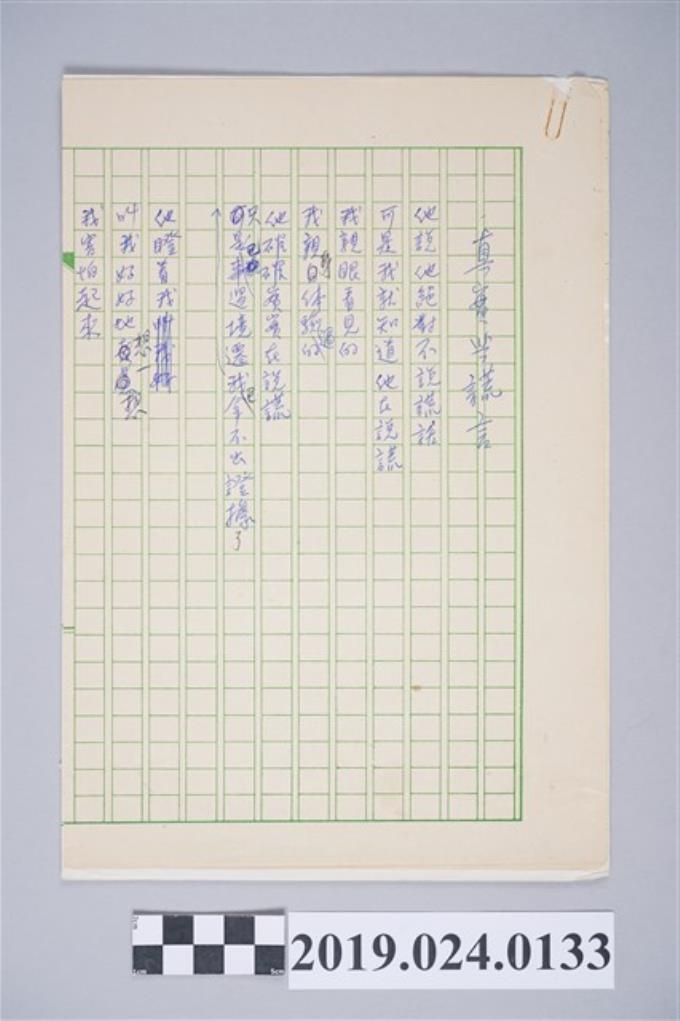 真實與謊言
他說他絕對不說謊話
可是我就知道他在說謊
我親眼看見的
我親身体驗過的
他確確實實在說謊
只是事過境遷我已拿不出證據了
他瞪著我
叫我好好地想一想
我害怕起來
2019.024.0133